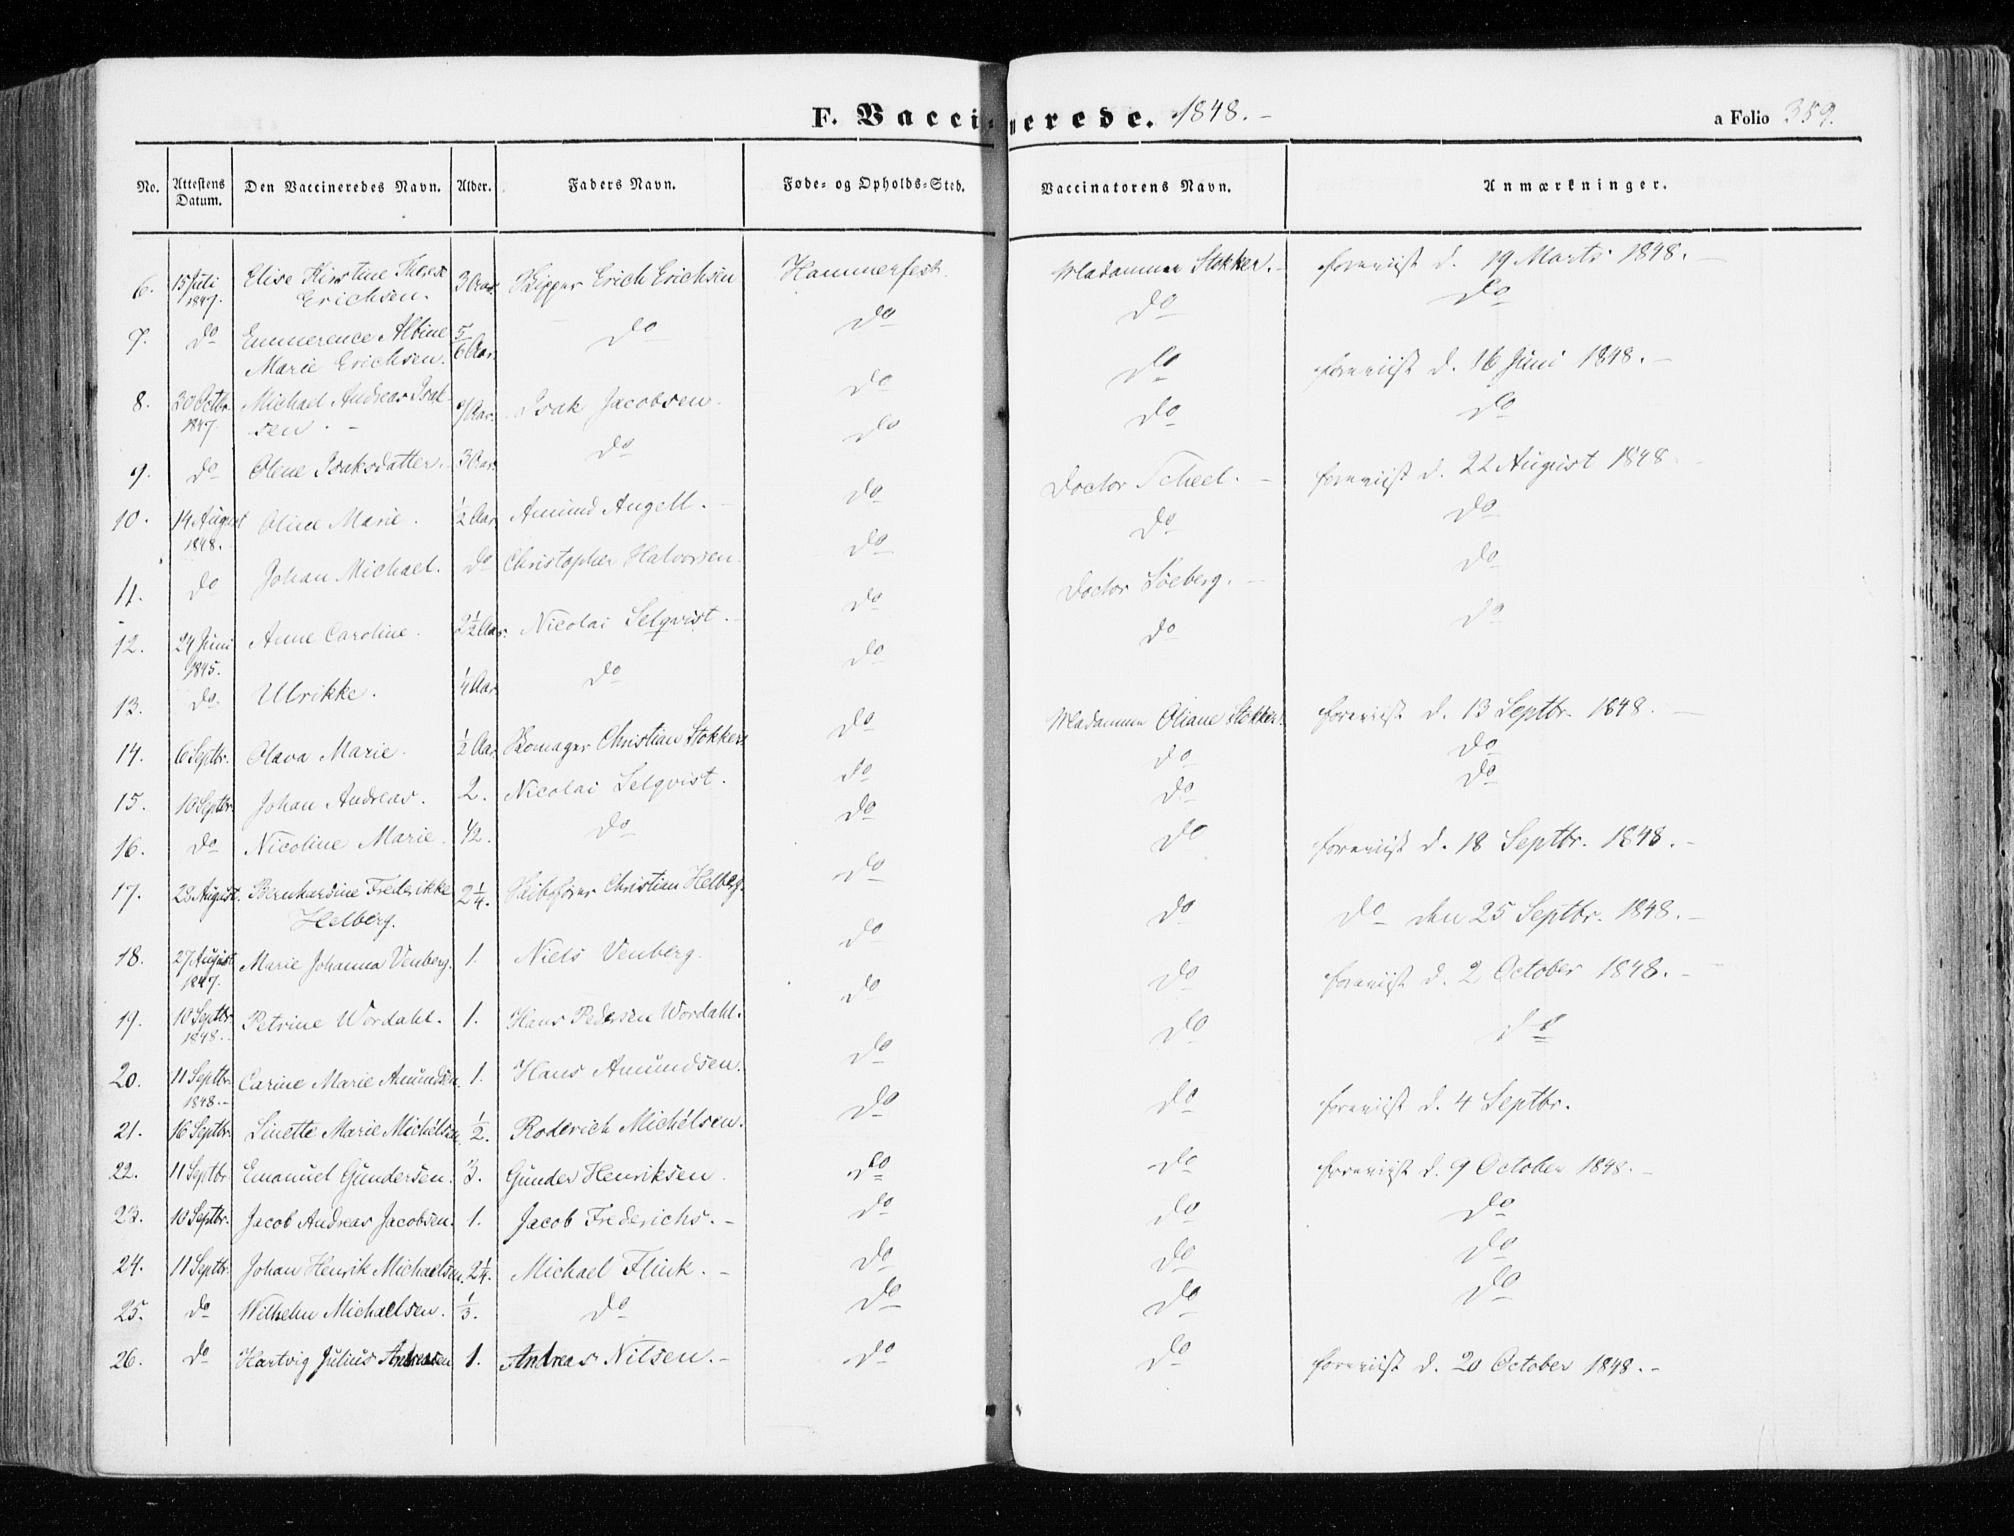 F. Vaccinerede. 1848.-
a Folio 359.
No. Attestens Datum. Den Vaccineredes Navn. Alder. Faders Navn. Føde- og Opholds-Sted. Vaccinatorens Navn. Anmærkninger.
6. 15 Juli 1847. Elise Kirstine Therese Erichsen. 3 Aar. Skipper Erich Erichsen Hammerfest. Madamme Stokker.- foreviist d. 19 Marts 1848.-
7. do Emmerence Albine Marie Erichsen. 5/6 Aar. do do do do
8. 30 Octbr. 1847. Michael Andreas Isaksen.- 7 Aar. Isak Jacobsen. do do foreviist d. 16 Juni 1848.-
9. do Olene Isaksdatter. 3 Aar. do do do do
10. 14 August 1848. Oline Marie. 1/2 Aar Amund Angell.- do Doctor Scheel.- foreviist d. 22 August 1848
11. do Johan Michael. do Christopher Halvorsen. do do do
12. 24 Juni 1845. Anne Caroline. 2 1/2 Aar. Nicolai Selqvist.- do Doctor Soeberg.- do
13. do Ulrikke. 1/4 Aar do do do do
14. 6 Septbr. Olava Marie. 1/2 Aar Skomager Christian Stokker do Madamme Oliane Stokker. foreviist d. 13 Septbr. 1848.
15. 10 Septbr. Johan Andreas. 2. Nicolai Selqvist. do do do
16. do Nicoline Marie. 1/2. do do do do
17. 28 August. Bernhardine Frederikke Helberg. 2 1/4. Skibsfører Christian Helberg. do do foreviist d. 18 Septbr. 1848.-
18. 27 August 1847. Marie Johanna Venberg. 1. Niels Venberg. do do do den 25 Septbr. 1848.-
19. 10 Septbr. 1848. Petrine Wordahl. 1. Hans Pedersen Wordahl. do do foreviist d. 2 October 1848.-
20. 11 Septbr. 1848.- Carine Marie Amundsen. 1. Hans Amundsen. do do do
21. 16 Septbr. Linette Marie Michélsen. 1/2. Roderich Michélsen. do do foreviist d. 4 Septbr.
22. 11 Septbr Emanuel Gundersen. 3. Gunder Henriksen. do do foreviist d. 9 October 1848.-
23. 10 Septbr. Jacob Andreas Jacobsen. 1. Jacob Frederichs.- do do do
24. 11 Septbr. Johan Henrik Michaelsen. 2 1/4. Michael Flink.- do do do
25. do Wilhelm Michaelsen. 1/3. do do do do
26. do Hartvig Julius Andreasen 1. Andreas Nilsen.- do do foreviist d. 20 October 1848.-